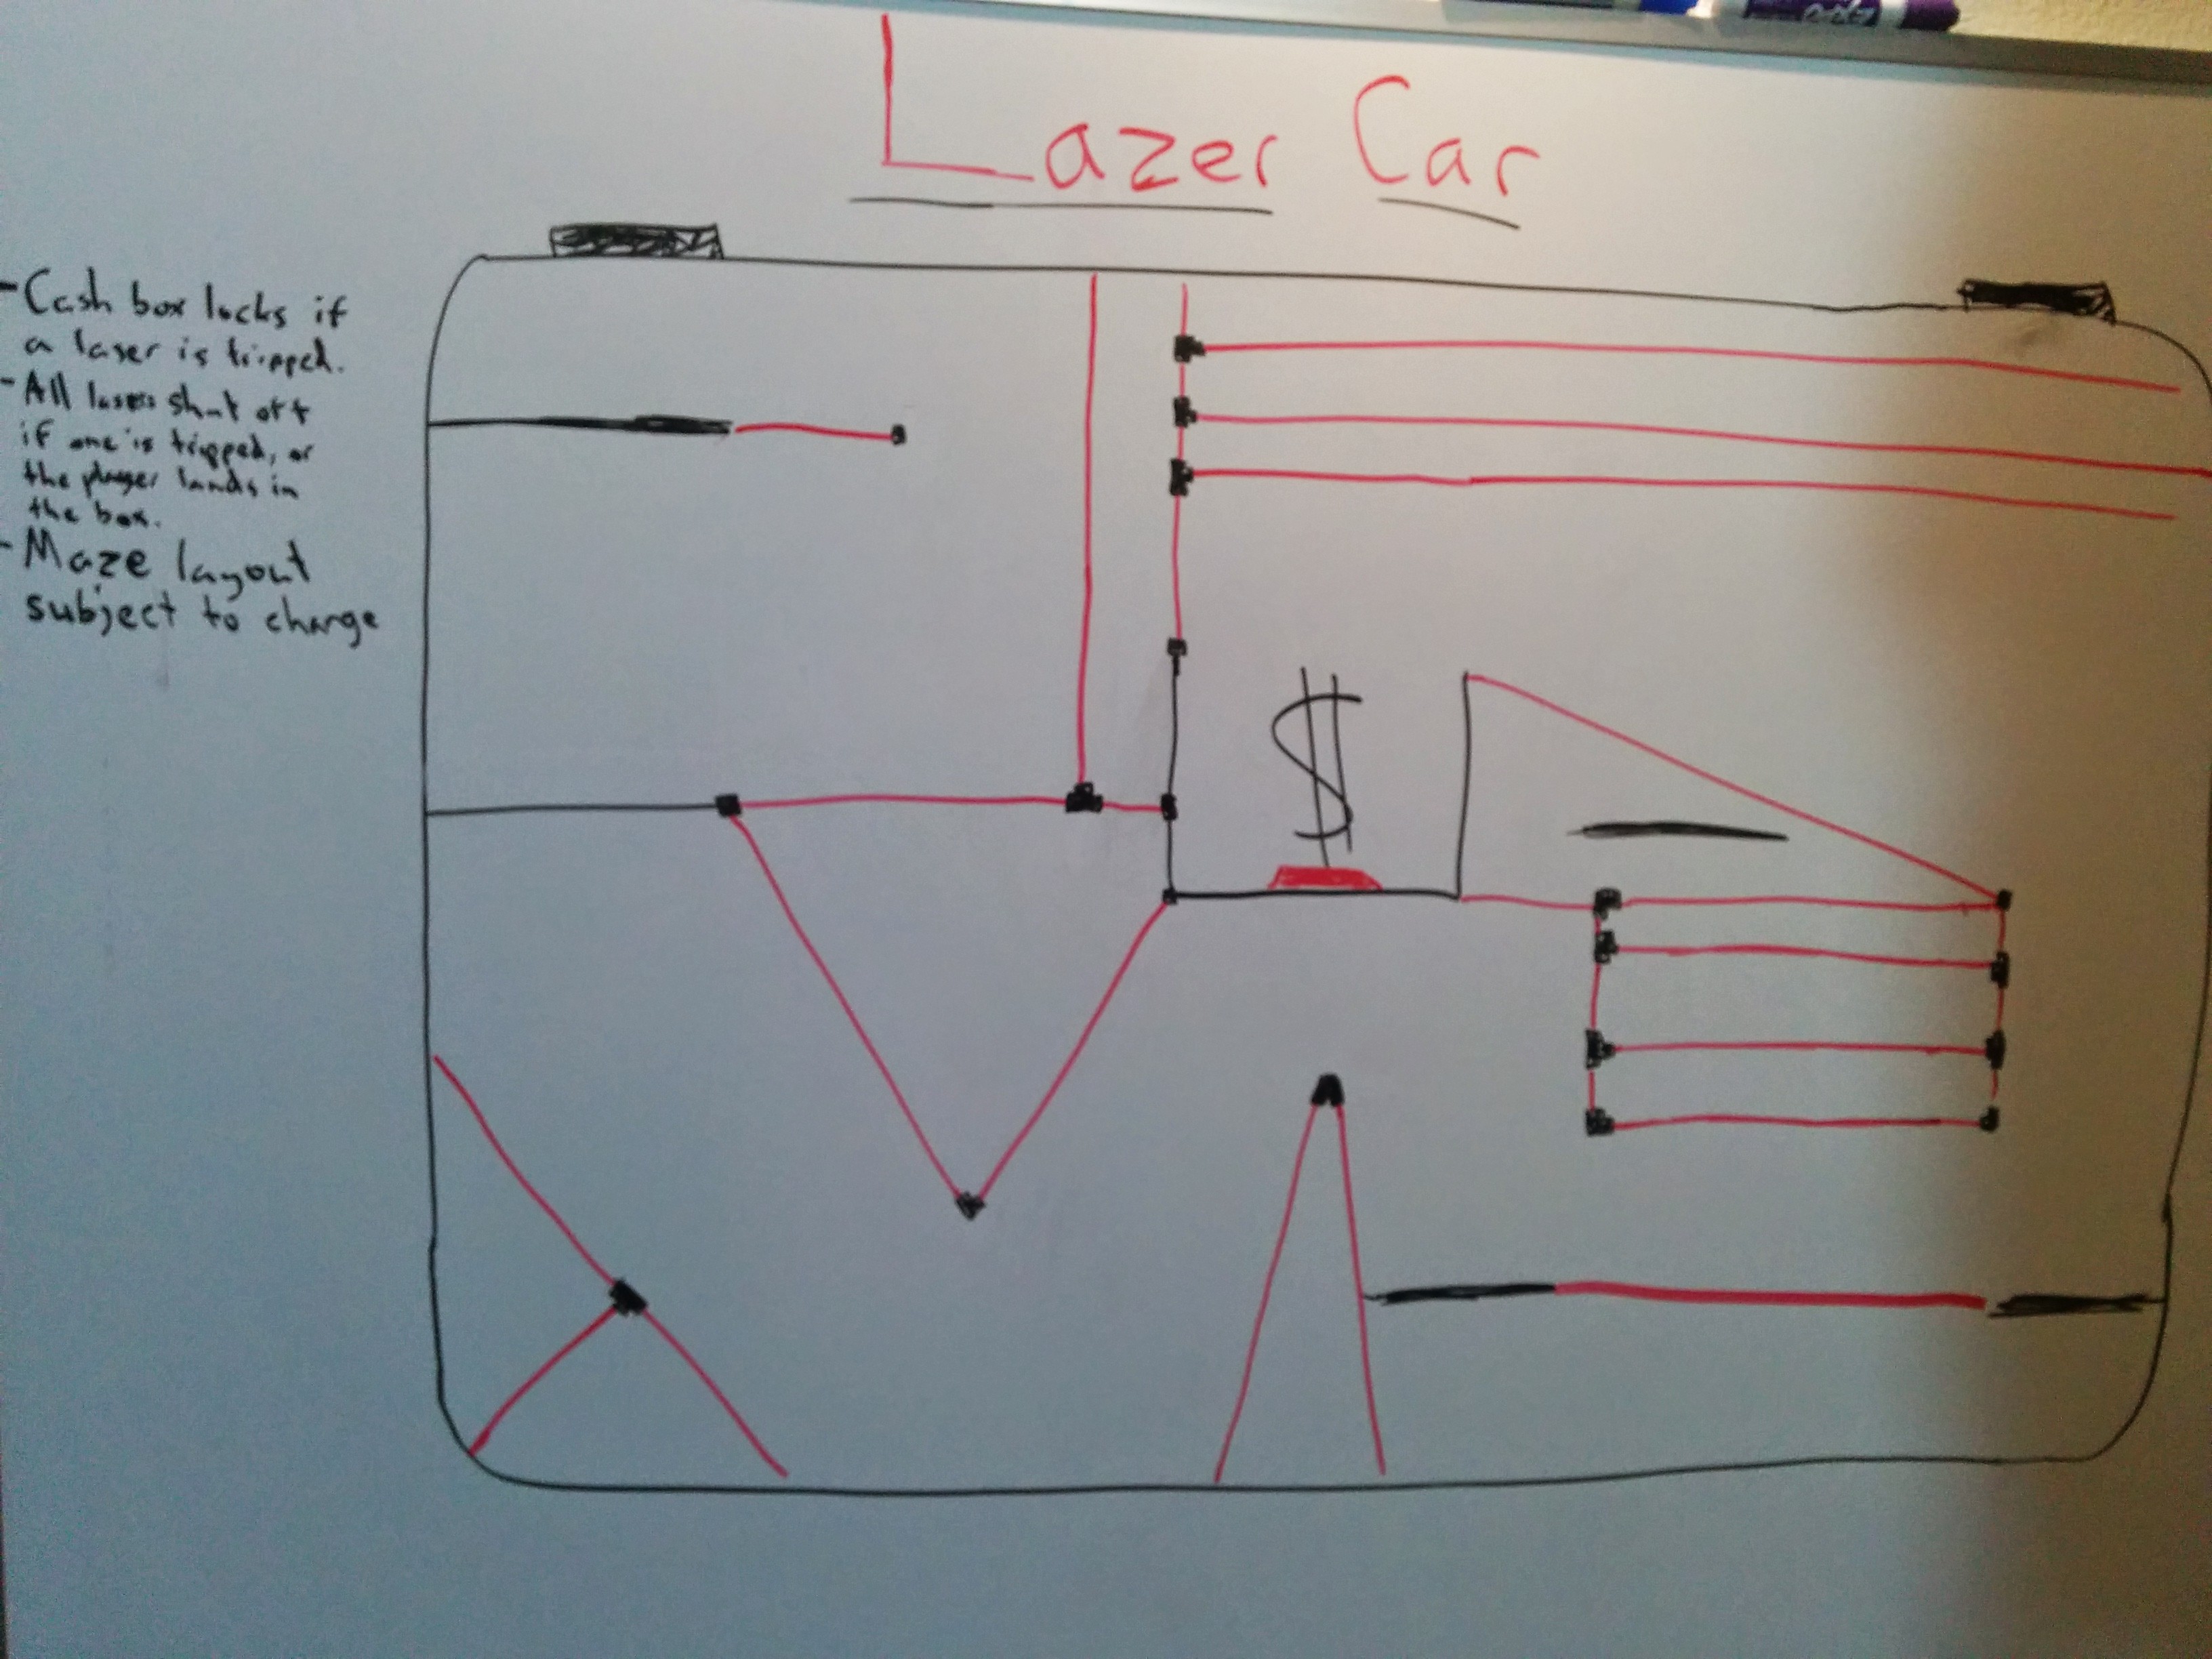 Lazer Car
- Cash box locks if
a laser is tripped.
- All lasers shut off
if one is tripped, or
the player lands in
the box.
- Maze layout
subject to change
$